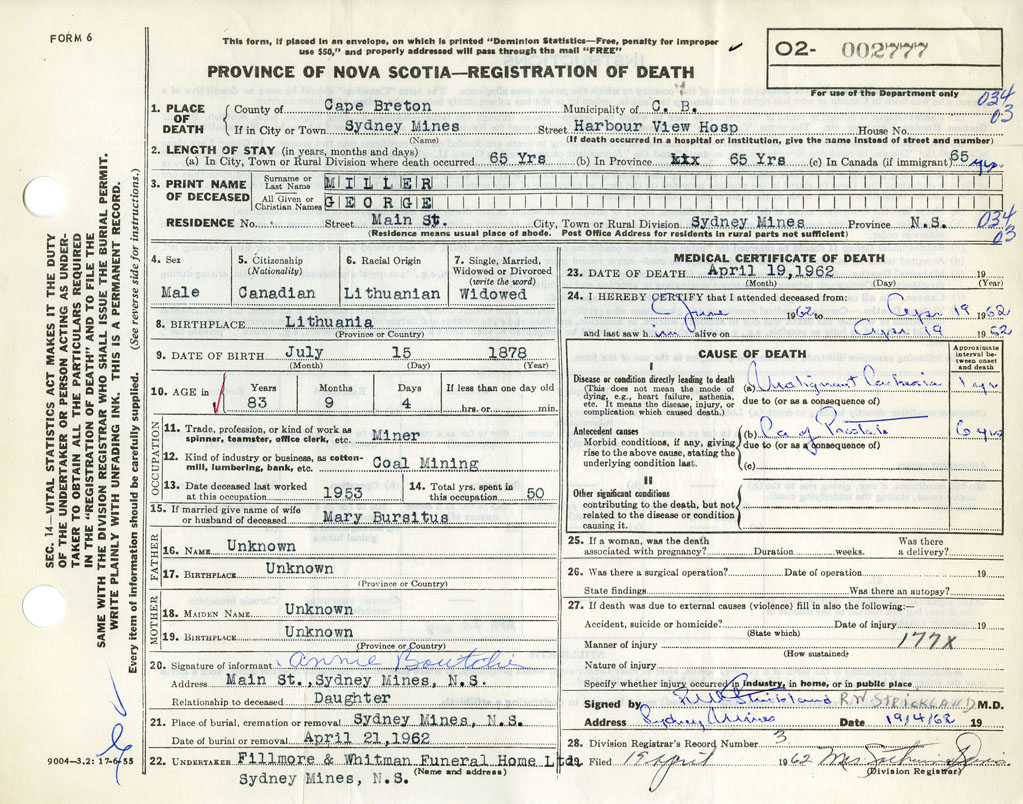 FORM 6
This form, if placed in an envelope, on which is printed "Dominion Statistics—Free, penalty for improper
use $50," and properly addressed will pass through the mail "FREE"
O2- 002777
PROVINCE OF NOVA SCOTIA—REGISTRATION OF DEATH
For use of the Department only
034
03
1. PLACE OF DEATH
County of Cape Breton Municipality of C. B.
If in City or Town Sydney Mines Street Harbour View Hosp House No.
(Name) (If death occurred in a hospital or institution, give the name instead of street and number)
2. LENGTH OF STAY (in years, months and days)
(a) In City, Town or Rural Division where death occurred 65 Yrs (b) In Province 65 Yrs (c) In Canada (if immigrant) 65 yrs
3. PRINT NAME OF DECEASED
Surname or Last Name MILLER
All Given or Christian Names GEORGE
RESIDENCE No. Street Main St. City, Town or Rural Division Sydney Mines Province N.S.
034
03
(Residence means usual place of abode. Post Office Address for residents in rural parts not sufficient)
4. Sex
Male
5. Citizenship
(Nationality)
Canadian
6. Racial Origin
Lithuanian
7. Single, Married,
Widowed or Divorced
(write the word)
Widowed
8. BIRTHPLACE Lithuania
(Province or Country)
9. DATE OF BIRTH July 15 1878
(Month) (Day) (Year)
10. AGE in
Years Months Days If less than one day old
83 9 4 hrs. or min.
OCCUPATION
11. Trade, profession, or kind of work as
spinner, teamster, office clerk, etc. Miner
12. Kind of industry or business, as cotton-
mill, lumbering, bank, etc. Coal Mining
13. Date deceased last worked
at this occupation 1953
14. Total yrs. spent in
this occupation 50
15. If married give name of wife
or husband of deceased Mary Bursitus
FATHER
16. NAME Unknown
17. BIRTHPLACE Unknown
(Province or Country)
MOTHER
18. MAIDEN NAME Unknown
19. BIRTHPLACE Unknown
(Province or Country)
20. Signature of informant Annie Boutchie
Address Main St., Sydney Mines, N.S.
Relationship to deceased Daughter
21. Place of burial, cremation or removal Sydney Mines, N.S.
Date of burial or removal April 21,1962
22. UNDERTAKER Fillmore & Whitman Funeral Home Ltd.
(Name and address)
Sydney Mines, N.S.
MEDICAL CERTIFICATE OF DEATH
23. DATE OF DEATH April 19,1962 19
(Month) (Day) (Year)
24. I HEREBY CERTIFY that I attended deceased from:
June 1962 to Apr 19 1962
and last saw him alive on Apr 19 1962
CAUSE OF DEATH
Approximate interval be-
tween onset
and death
I
Disease or condition directly leading to death
(This does not mean the mode of
dying, e.g., heart failure, asthenia,
etc. It means the disease, injury, or
complication which caused death.)
(a) Malignant Cachexia 1 yr
due to (or as a consequence of)
Antecedent causes
Morbid conditions, if any, giving
rise to the above cause, stating the
underlying condition last.
(b) Ca of Prostate 6 yrs
due to (or as a consequence of)
(c)
II
Other significant conditions
contributing to the death, but not
related to the disease or condition
causing it.
25. If a woman, was the death
associated with pregnancy? Duration weeks. Was there
a delivery?
26. Was there a surgical operation? Date of operation 19
State findings Was there an autopsy?
27. If death was due to external causes (violence) fill in also the following:—
Accident, suicide or homicide? Date of injury 19
(State which)
Manner of injury 177X
(How sustained)
Nature of injury
Specify whether injury occurred in industry, in home, or in public place
Signed by RW Strickland R W STRICKLAND M.D.
Address Sydney Mines Date 19/4/62 19
28. Division Registrar's Record Number 3
29. Filed 19 April 1962 Mrs
(Division Registrar)
SEC. 14—VITAL STATISTICS ACT MAKES IT THE DUTY
OF THE UNDERTAKER OR PERSON ACTING AS UNDER-
TAKER TO OBTAIN ALL THE PARTICULARS REQUIRED
IN THE "REGISTRATION OF DEATH" AND TO FILE THE
SAME WITH THE DIVISION REGISTRAR WHO SHALL ISSUE THE BURIAL PERMIT.
WRITE PLAINLY WITH UNFADING INK. THIS IS A PERMANENT RECORD.
Every item of information should be carefully supplied. (See reverse side for instructions.)
9004—3,2: 17-6-55